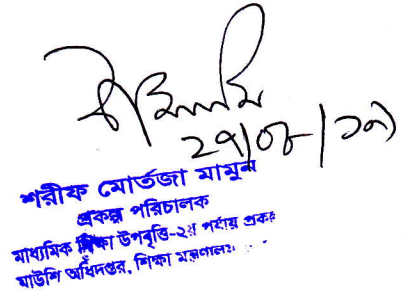 ২৭/০৮/১৭
শরীফ মোর্তজা মামুন
প্রকল্প পরিচালক
মাধ্যমিক শিক্ষা উপবৃত্তি-২য় পর্যায় প্রকল্প
মাউশি অধিদপ্তর, শিক্ষা মন্ত্রণালয়